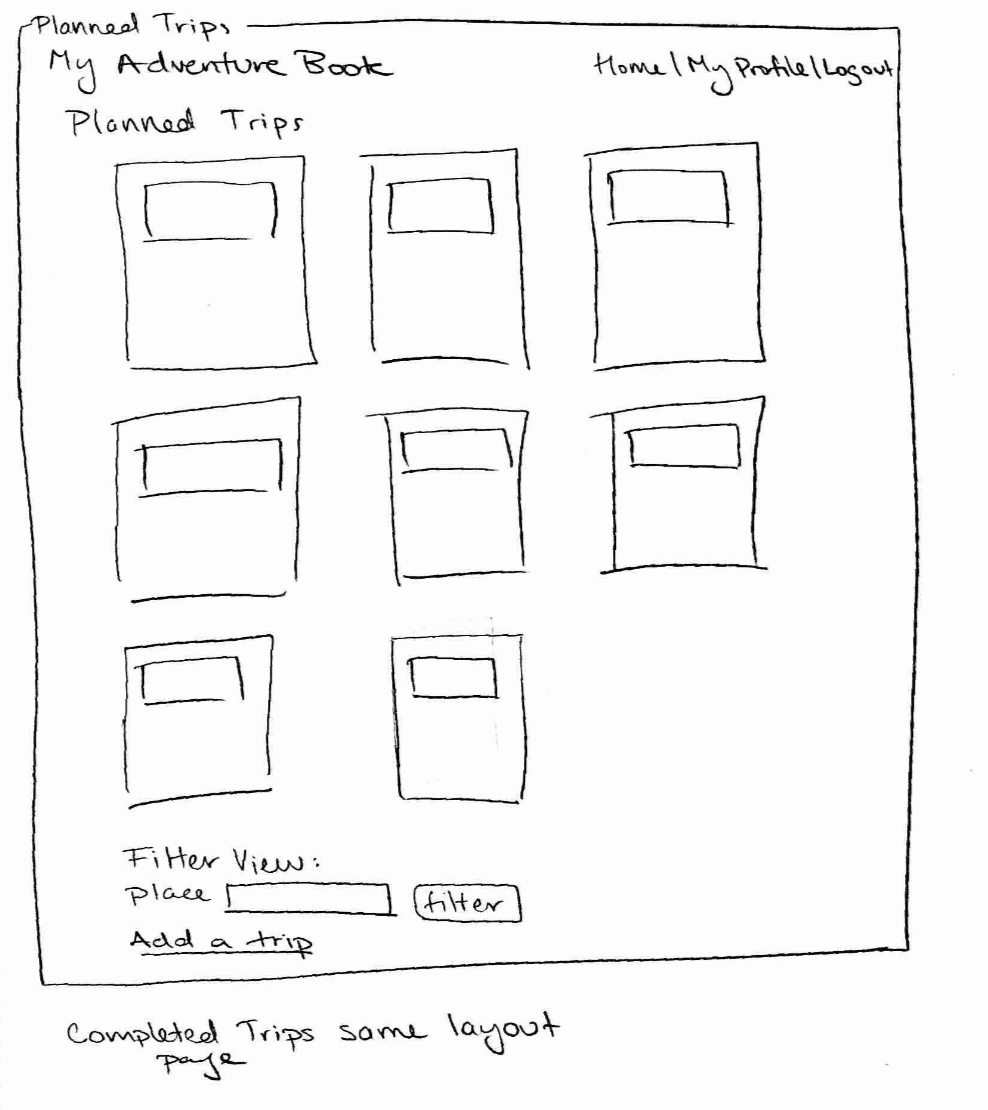 Planned Trips
My Adventure Book
Home | My Profile | Logout
Planned Trips
Filter View:
Place
filter
Add a trip
Completed Trips same layout
page